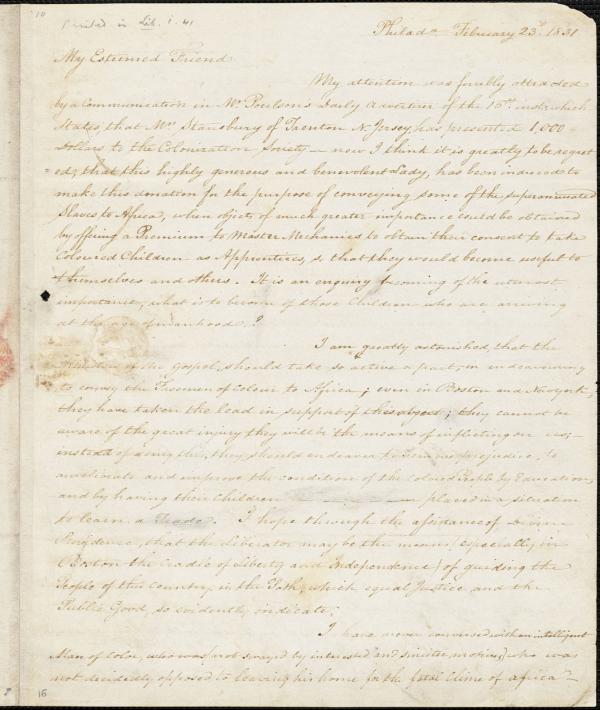 10
Printed in Lib. 1. 41
Philad.a February 23.d 1831
My Esteemed Friend
My attention was forcibly attracted
by a Communication in Mr Poulson's Daily Advertiser of the 16th inst: which
States, that Mrs Stansbury of Trenton N. Jersey, has presented 1,000
Dollars to the Colonization Society — now I think it is greatly to be regret
=ed, that this highly generous and benevolent Lady, has been induced to
make this donation for the purpose of conveying some of the superannuated
Slaves to Africa, when objects of much greater importance could be obtained
by offering a Premium to Master Mechanics to obtain their consent to take
Coloured Children as Apprentices, & that they would become useful to
themselves and others. It is an enquiry becoming of the utmost
importance, what is to become of those Children who are arriving
at the age of manhood?
I am greatly astonished, that the
Ministers of the Gospel, should take so active a part, in endeavouring
to convey the Freemen of Colour to Africa; even in Boston and New York,
they have taken the lead in support of this object; they cannot be
aware of the great injury they will be the means of inflicting on us;—
instead of doing this, they should endeavor to remove prejudice, to
ameliorate and improve the condition of the Colored People by Education,
and by having their Children placed in a situation
to learn a Trade. I hope through the assistance of Divine
Providence, that the Liberator may be the means (especially in
Boston the Cradle of Liberty and Independence) of guiding the
People of this Country in the Path, which equal Justice and the
Public Good, so evidently indicate.
I have never conversed with an intelligent
Man of Color, who was (not swayed by interested and sinister motives) who was
not decidedly opposed to leaving his home for the fatal Clime of Africa —
16